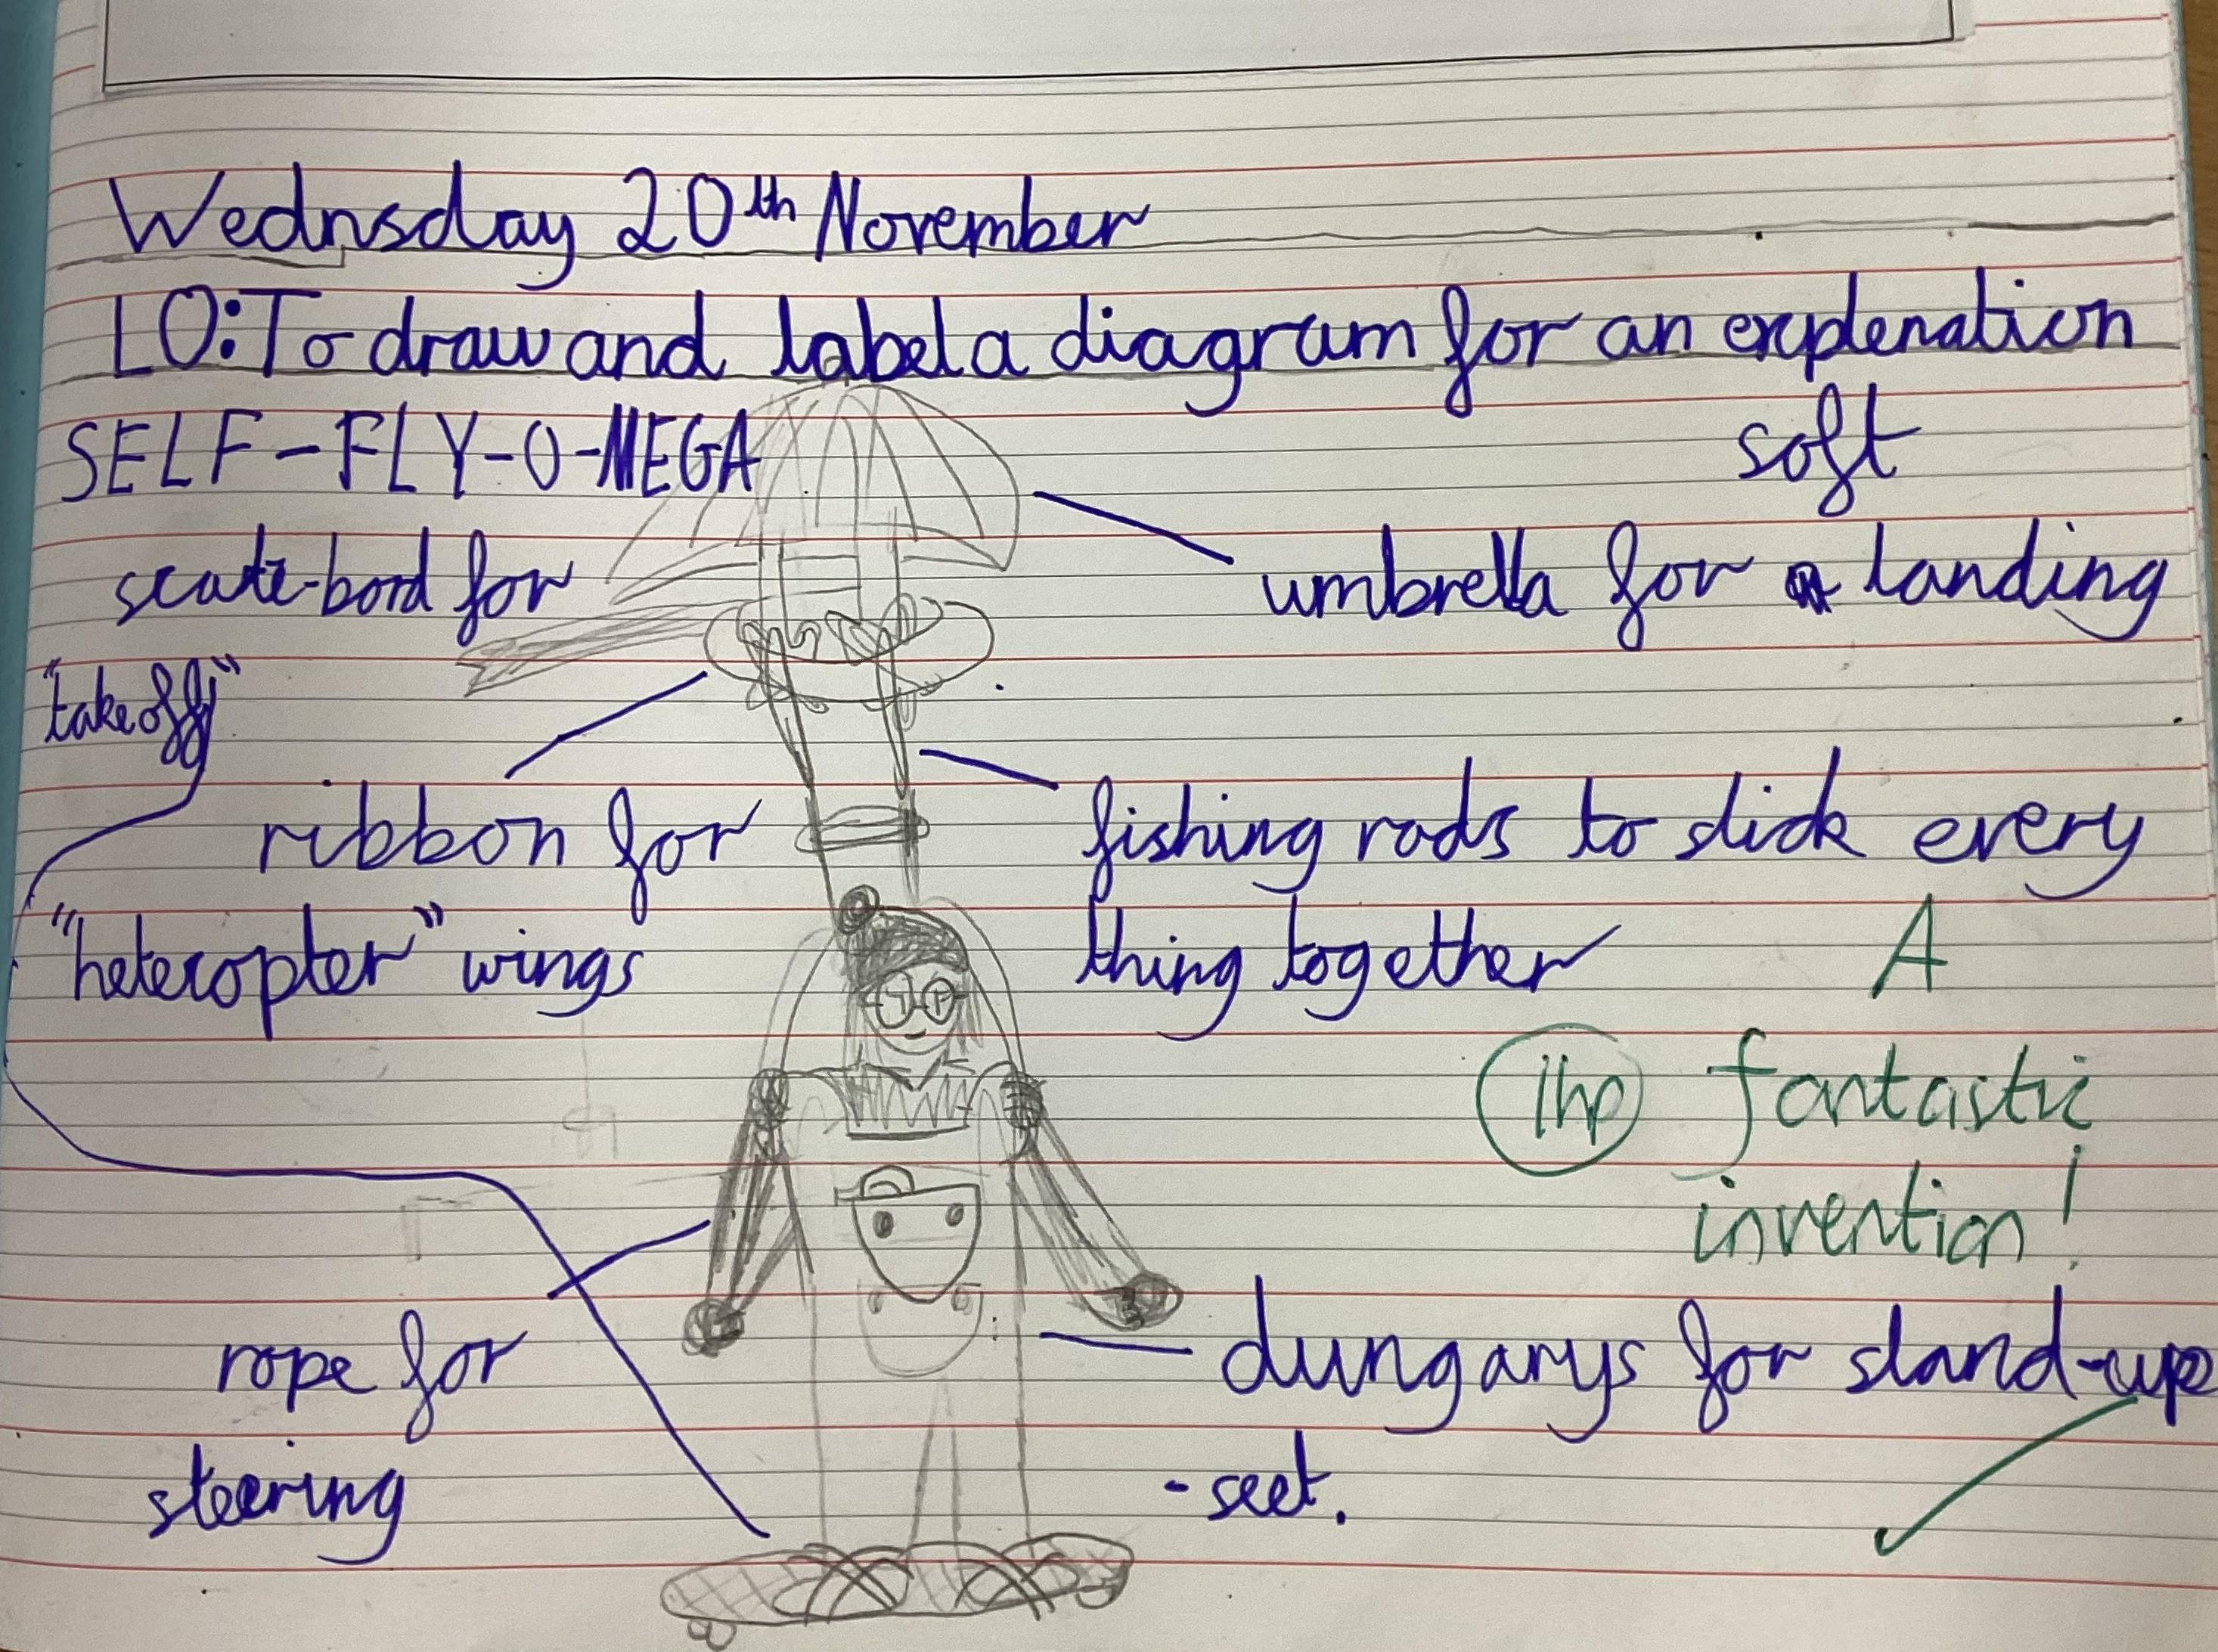 Wednsday 20th November
LO: To draw and label a diagram for an explenation
SELF-FLY-O-MEGA
soft
scate-bord for
umbrella for landing
"take off"
ribbon for
"hetecopter" wings
fishing rods to stick every
thing together
A
1hp fantastic
invention!
rope for
steering
dungarys for stand-up
-seet.